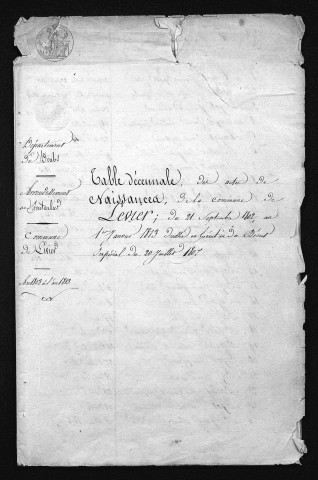 Département
du Doubs
Arrondissement
de Pontarlier
Commune
de Levier
An 1803 à l'an 1813
Table décennale, des actes de
Naissances, de la commune de
Levier; du 21 Septembre 1802, au
1er Janvier 1813 dressée en Exécution du Décret
Impérial du 20 Juillet 1807